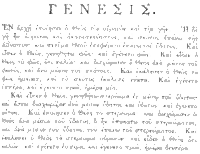 ΓΕΝΕΣΙΣ.
ἘΝ ἀρχῇ ἐποίησεν ὁ Θεὸς τὸν οὐρανὸν καὶ τὴν γῆν. Ἡ δὲ
γῆ ἦν ἀόρατος καὶ ἀκατασκεύαστος, καὶ σκότος ἐπάνω τῆς
ἀβύσσου· καὶ πνεῦμα Θεοῦ ἐπεφέρετο ἐπάνω τοῦ ὕδατος. Καὶ
εἶπεν ὁ Θεὸς, γενηθήτω φῶς· καὶ ἐγένετο φῶς. Καὶ εἶδεν ὁ
Θεὸς τὸ φῶς, ὅτι καλόν· καὶ διεχώρισεν ὁ Θεὸς ἀνὰ μέσον τοῦ
φωτὸς, καὶ ἀνὰ μέσον τοῦ σκότους. Καὶ ἐκάλεσεν ὁ Θεὸς τὸ
φῶς ἡμέραν, καὶ τὸ σκότος ἐκάλεσε νύκτα. Καὶ ἐγένετο
ἑσπέρα, καὶ ἐγένετο πρωῒ, ἡμέρα μία.
Καὶ εἶπεν ὁ Θεὸς, γενηθήτω στερέωμα ἐν μέσῳ τοῦ ὕδατος·
καὶ ἔστω διαχωρίζον ἀνὰ μέσον ὕδατος καὶ ὕδατος· καὶ ἐγένετο
οὕτως. Καὶ ἐποίησεν ὁ Θεὸς τὸ στερέωμα· καὶ διεχώρισεν ὁ Θεὸς
ἀνὰ μέσον τοῦ ὕδατος, ὃ ἦν ὑποκάτω τοῦ στερεώματος,
καὶ ἀνὰ μέσον τοῦ ὕδατος, τοῦ ἐπάνω τοῦ στερεώματος. Καὶ
ἐκάλεσεν ὁ Θεὸς τὸ στερέωμα οὐρανόν· καὶ εἶδεν ὁ Θεὸς, ὅτι
καλόν· καὶ ἐγένετο ἑσπέρα, καὶ ἐγένετο πρωῒ, ἡμέρα δευτέρα.